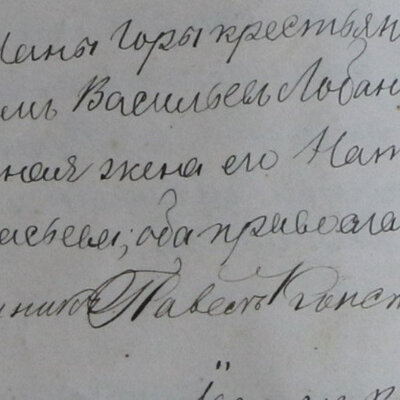 Маны Горы крестьян
илъ Васильевъ Лобан
ная жена его Нат
асьева; оба правосла
иникъ Павелъ Конст